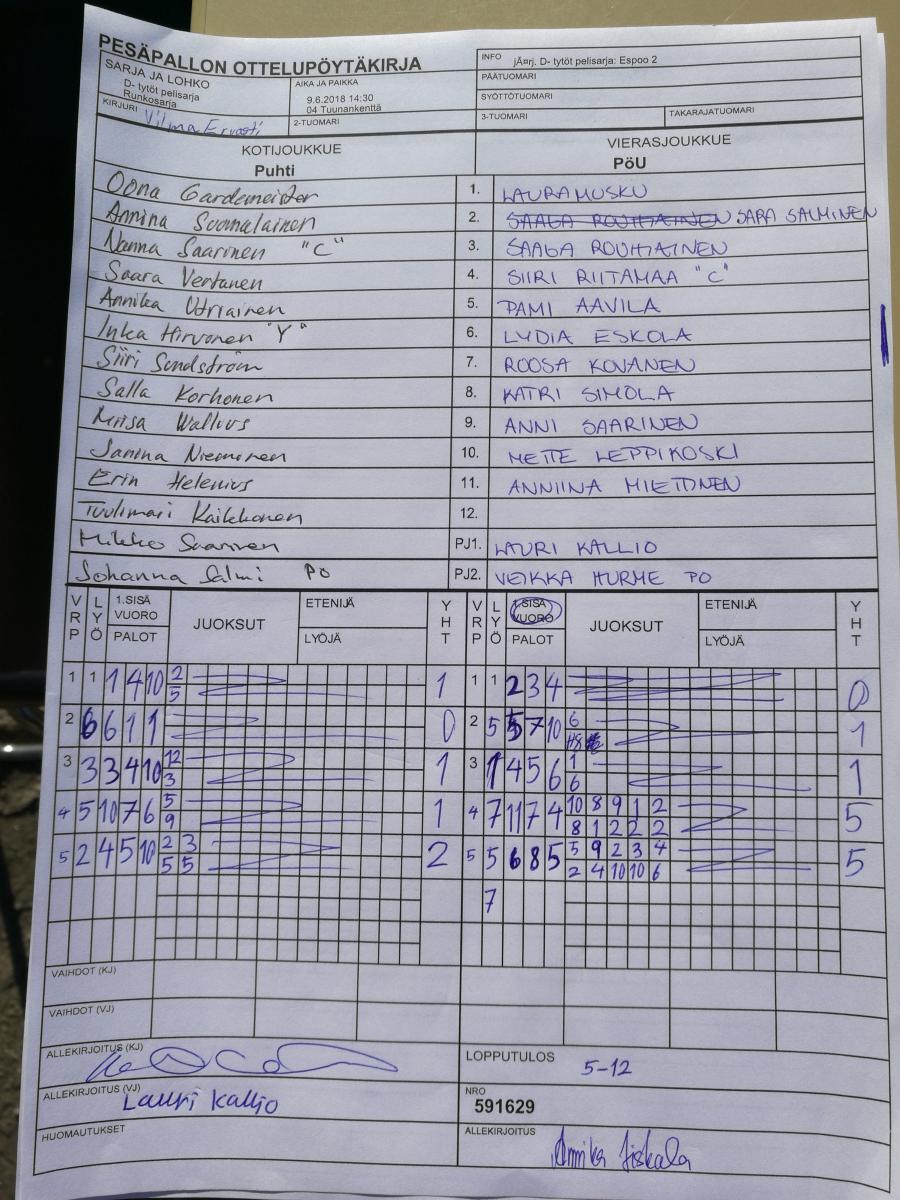 PESÄPALLON OTTELUPÖYTÄKIRJA
SARJA JA LOHKO
D- tytöt pelisarja
Runkosarja
AIKA JA PAIKKA
9.6.2018 14:30
04 Tuunankenttä
KIRJURI Vilma Ervasti
2-TUOMARI
INFO jÃ¤rj. D- tytöt pelisarja: Espoo 2
PÄÄTUOMARI
SYÖTTÖTUOMARI
3-TUOMARI TAKARAJATUOMARI
KOTIJOUKKUE VIERASJOUKKUE
Puhti PöU
Oona Gardemeister 1. LAURA MUSKU
Annina Suomalainen 2. SAAGA ROUHIAINEN SARA SALMINEN
Nanna Saarinen "C" 3. SAAGA ROUHIAINEN
Saara Vertanen 4. SIIRI RIITAMAA "C"
Annika Utriainen 5. PAMI AAVILA
Inka Hirvonen "Y" 6. LYDIA ESKOLA
Siiri Sundström 7. ROOSA KOVANEN
Salla Korhonen 8. KATRI SIMOLA
Miisa Wallius 9. ANNI SAARINEN
Janina Nieminen 10. METTE LEPPIKOSKI
Erin Helenius 11. ANNIINA MIETTINEN
Tuulimari Kaikkonen 12.
Mikko Saarinen PJ1. LAURI KALLIO
Johanna Salmi PO PJ2. VEIKKA HURME PO
VRP LYÖ 1.SISÄ VUORO PALOT JUOKSUT ETENIJÄ LYÖJÄ YHT VRP LYÖ 1.SISÄ VUORO PALOT JUOKSUT ETENIJÄ LYÖJÄ YHT
1 1 1 4 10 2 1 1 1 2 3 4 0
5
2 6 6 1 1 0 2 5 5 7 10 6 1
3 3 3 4 10 12 1 3 1 4 5 6 1 1
3 6
4 5 10 7 6 5 1 4 7 11 7 4 10 8 9 1 2 5
9 8 1 2 2 2
5 2 4 5 10 2 3 2 5 5 6 8 5 5 9 2 3 4 5
5 5 2 4 10 10 6
7
VAIHDOT (KJ)
VAIHDOT (VJ)
ALLEKIRJOITUS (KJ)
LOPPUTULOS 5-12
ALLEKIRJOITUS (VJ) Lauri Kallio
NRO
591629
HUOMAUTUKSET
ALLEKIRJOITUS Annika Iiskala